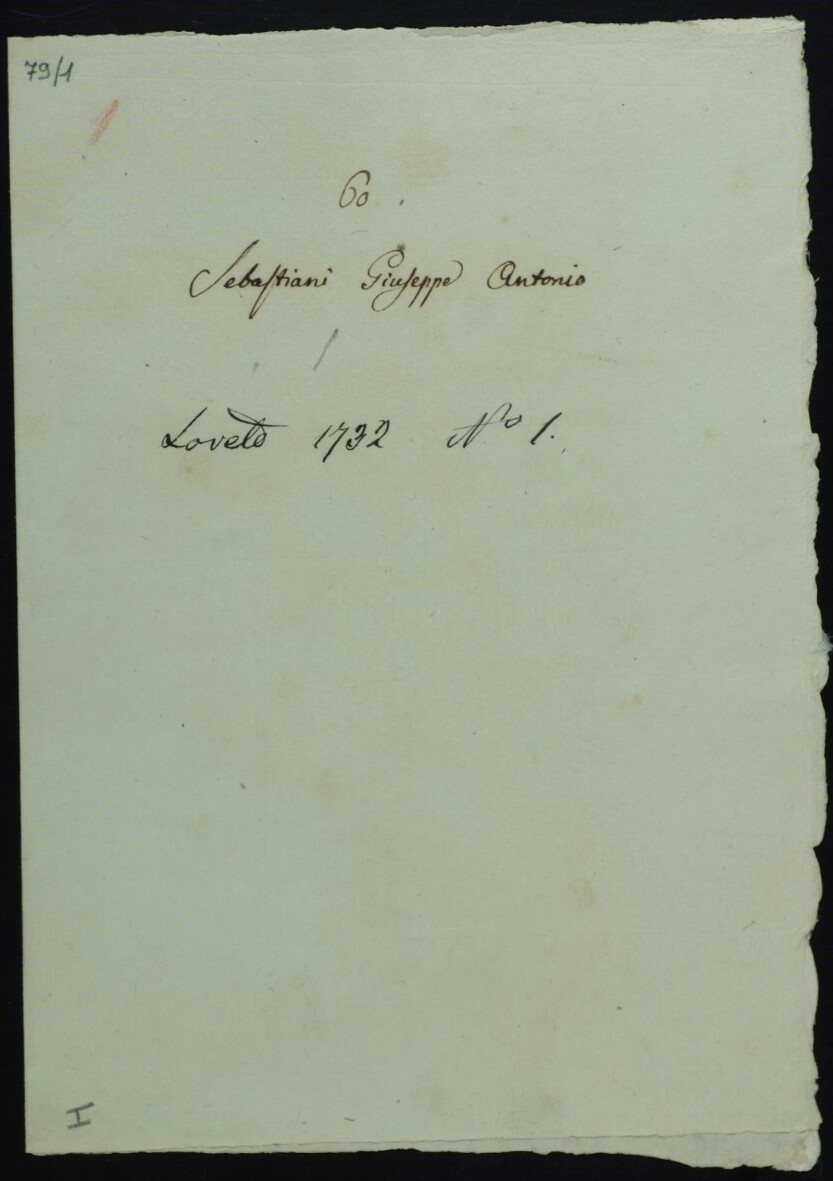 79/1
60.
Sebastiani Giuseppe Antonio
Loreto 1732 No 1.
I